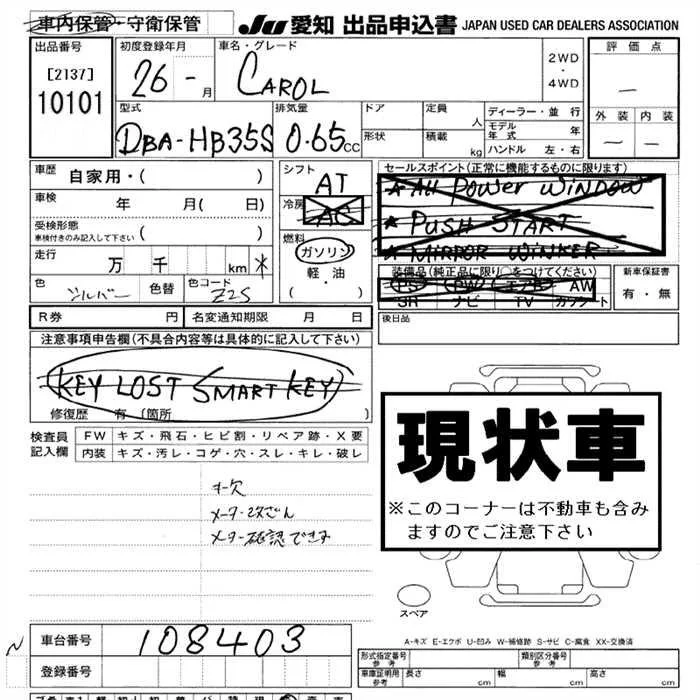 車内保管・守衛保管 JU 愛知 出品申込書 JAPAN USED CAR DEALERS ASSOCIATION
出品番号 初度登録年月 車名・グレード 評価点
[2137] 26 - 月 CAROL 2WD ・ 4WD -
10101
型式 排気量 ドア 定員 人 ディーラー・並行 外装 内装
DBA-HB35S 0.65 CC 形状 積載 kg モデル年式 年 - -
ハンドル 左・右
車歴 自家用・( ) シフト AT セールスポイント(正常に機能するものに限ります)
車検 年 月( 日) 冷房 AC ★ All Power WINDOW
受検形態 ( ) ★ PUSH START
車検付きのみ記入して下さい 燃料 ★ MIRROR WINKER
走行 万 千 km * ガソリン 装備品(純正品に限り○をつけてください) 新車保証書
色 シルバー 色替 色コード Z2S 軽・油 PS PW エアB AW 有・無
( ・ ) SR ナビ TV カセット
R券 円 名変通知期限 月 日 後日品
注意事項申告欄(不具合内容等は具体的に記入して下さい)
KEY LOST SMART KEY
修復歴 有 (箇所 )
検査員記入欄 FW キズ・飛石・ヒビ割・リペア跡・X要
内装 キズ・汚レ・コゲ・穴・スレ・キレ・破レ
現状車
※このコーナーは不動車も含み
ますのでご注意下さい
キー欠
メーター改ざん
メーター確認できず
スペア
A-キズ E-エクボ U-凹み W-補修跡 S-サビ C-腐食 XX-交換済
車台番号 108403
登録番号
形式指定番号 参考 類別区分番号 参考
車庫証明用 参考 長さ cm 幅 cm 高さ cm